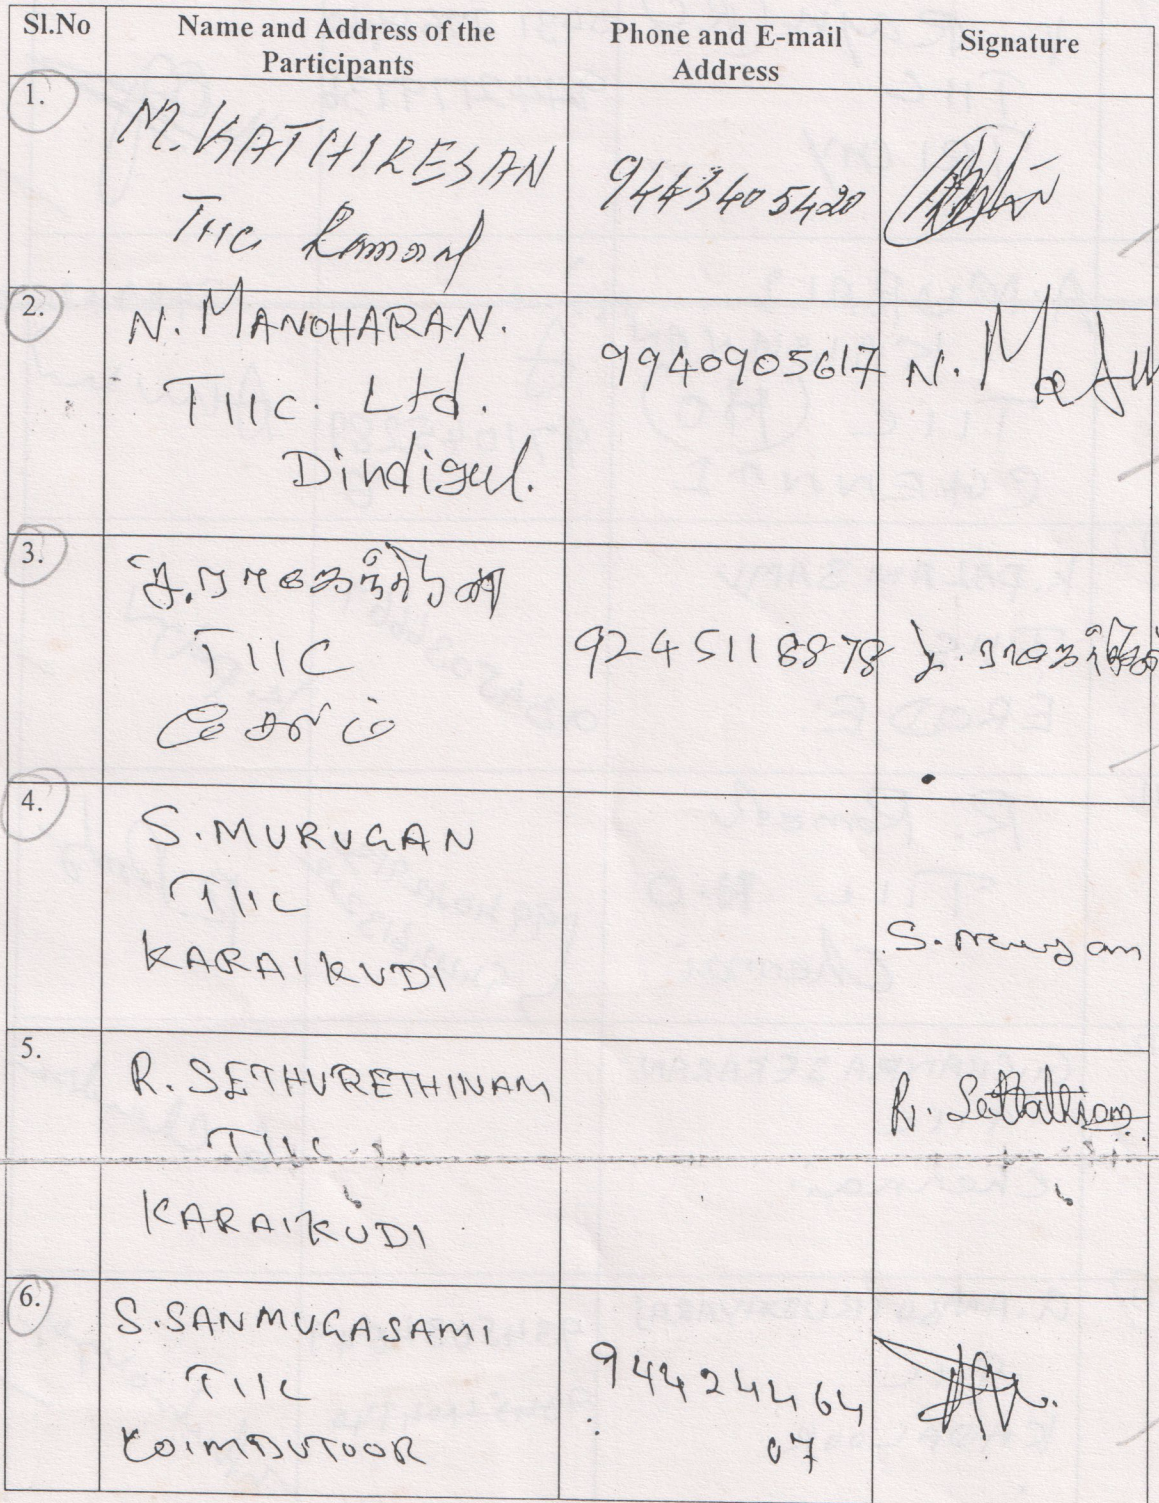 Sl.No
Name and Address of the
Participants
Phone and E-mail
Address
Signature
1.
M. KATHIRESAN
TIIC
9443405420
2.
N. MANOHARAN.
TIIC. Ltd.
Dindigul.
9940905617
N.
3.
TIIC
9245118878
4.
S. MURUGAN
TIIC
KARAIKUDI
S. Murugan
5.
R. SETHURETHINAM
TIIC
KARAIKUDI
R.
6.
S. SANMUGASAMI
TIIC
COIMBUTOOR
94424464
07